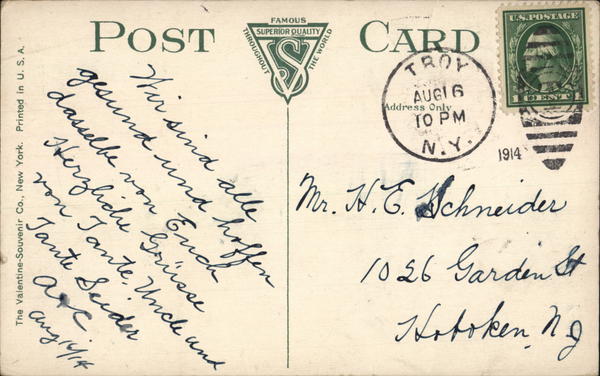 POST CARD
FAMOUS
SUPERIOR QUALITY
THROUGHOUT THE WORLD
VS
U.S. POSTAGE
TROY
AUG 16
10 PM
N.Y.
1914
Address Only
The Valentine-Souvenir Co., New York. Printed in U. S. A.
Wir sind alle
gesund und hoffen
dasselbe von Euch
Herzliche Grüsse
von Tante, Uncle und
Tante Seider
A & C
Aug 16/14
Mr. H. E. Schneider
1026 Garden St
Hoboken, NJ